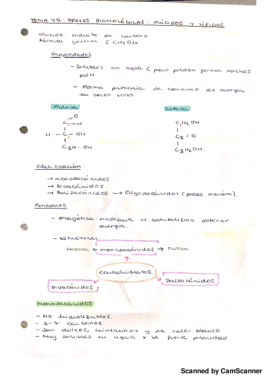 TEMA 4G: PPALES BIOMOLÉCULAS: GLÚCIDOS Y LÍPIDOS
Glúcido: hidrato de carbono
Fórmula general (CH2O)n
Propiedades
- Solubles en agua (pero pueden formar
pdH
- Forma primaria de consumo de energía
en seres vivos
Aldosa
Cetosa
O
C1-H
C1H2OH
H - C - OH
C2=O
C3H-OH
C3H2OH
Clasificación:
→ monosacáridos
→ Disacáridos
→ Polisacáridos → Oligosacáridos
Funciones
- energética: mediante el catabolismo obtener
energía.
- estructural
monosacáridos
Carbohidratos
Disacáridos
Polisacáridos
Monosacáridos
- No hidrolizables.
- 3-7 carbonos
- Son dulces, cristalinos y de color blanco
- Muy solubles en agua x la fuerte polaridad
Scanned by CamScanner